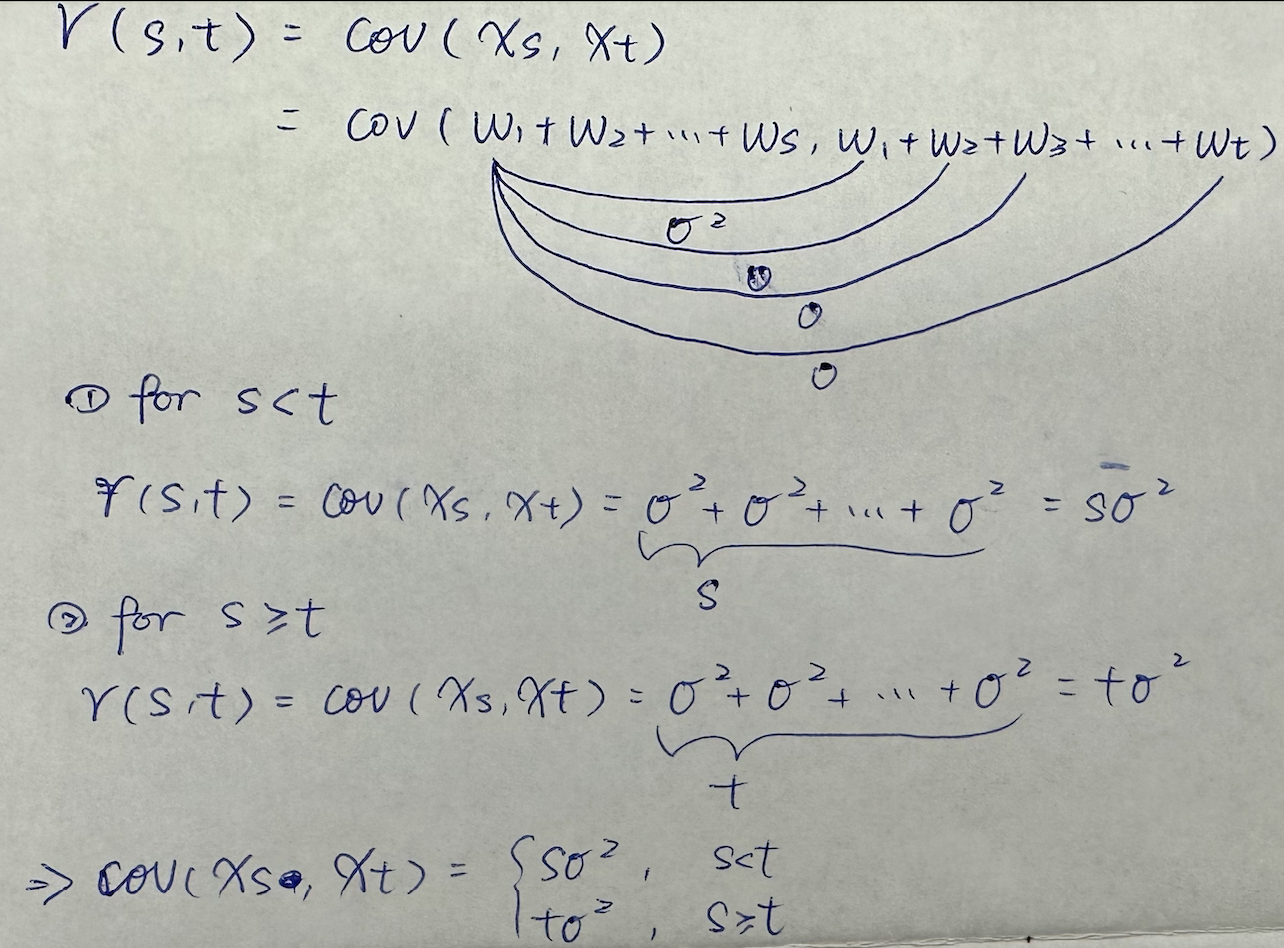 γ(s,t) = cov(Xs, Xt)
= cov(W₁+W₂+...+Ws, W₁+W₂+W₃+...+Wt)
σ²
0
0
0
① for s<t
γ(s,t) = cov(Xs, Xt) = σ²+σ²+...+σ² = sσ²
s
② for s≥t
γ(s,t) = cov(Xs, Xt) = σ²+σ²+...+σ² = tσ²
t
⇒ cov(Xs, Xt) = { sσ², s<t
tσ², s≥t